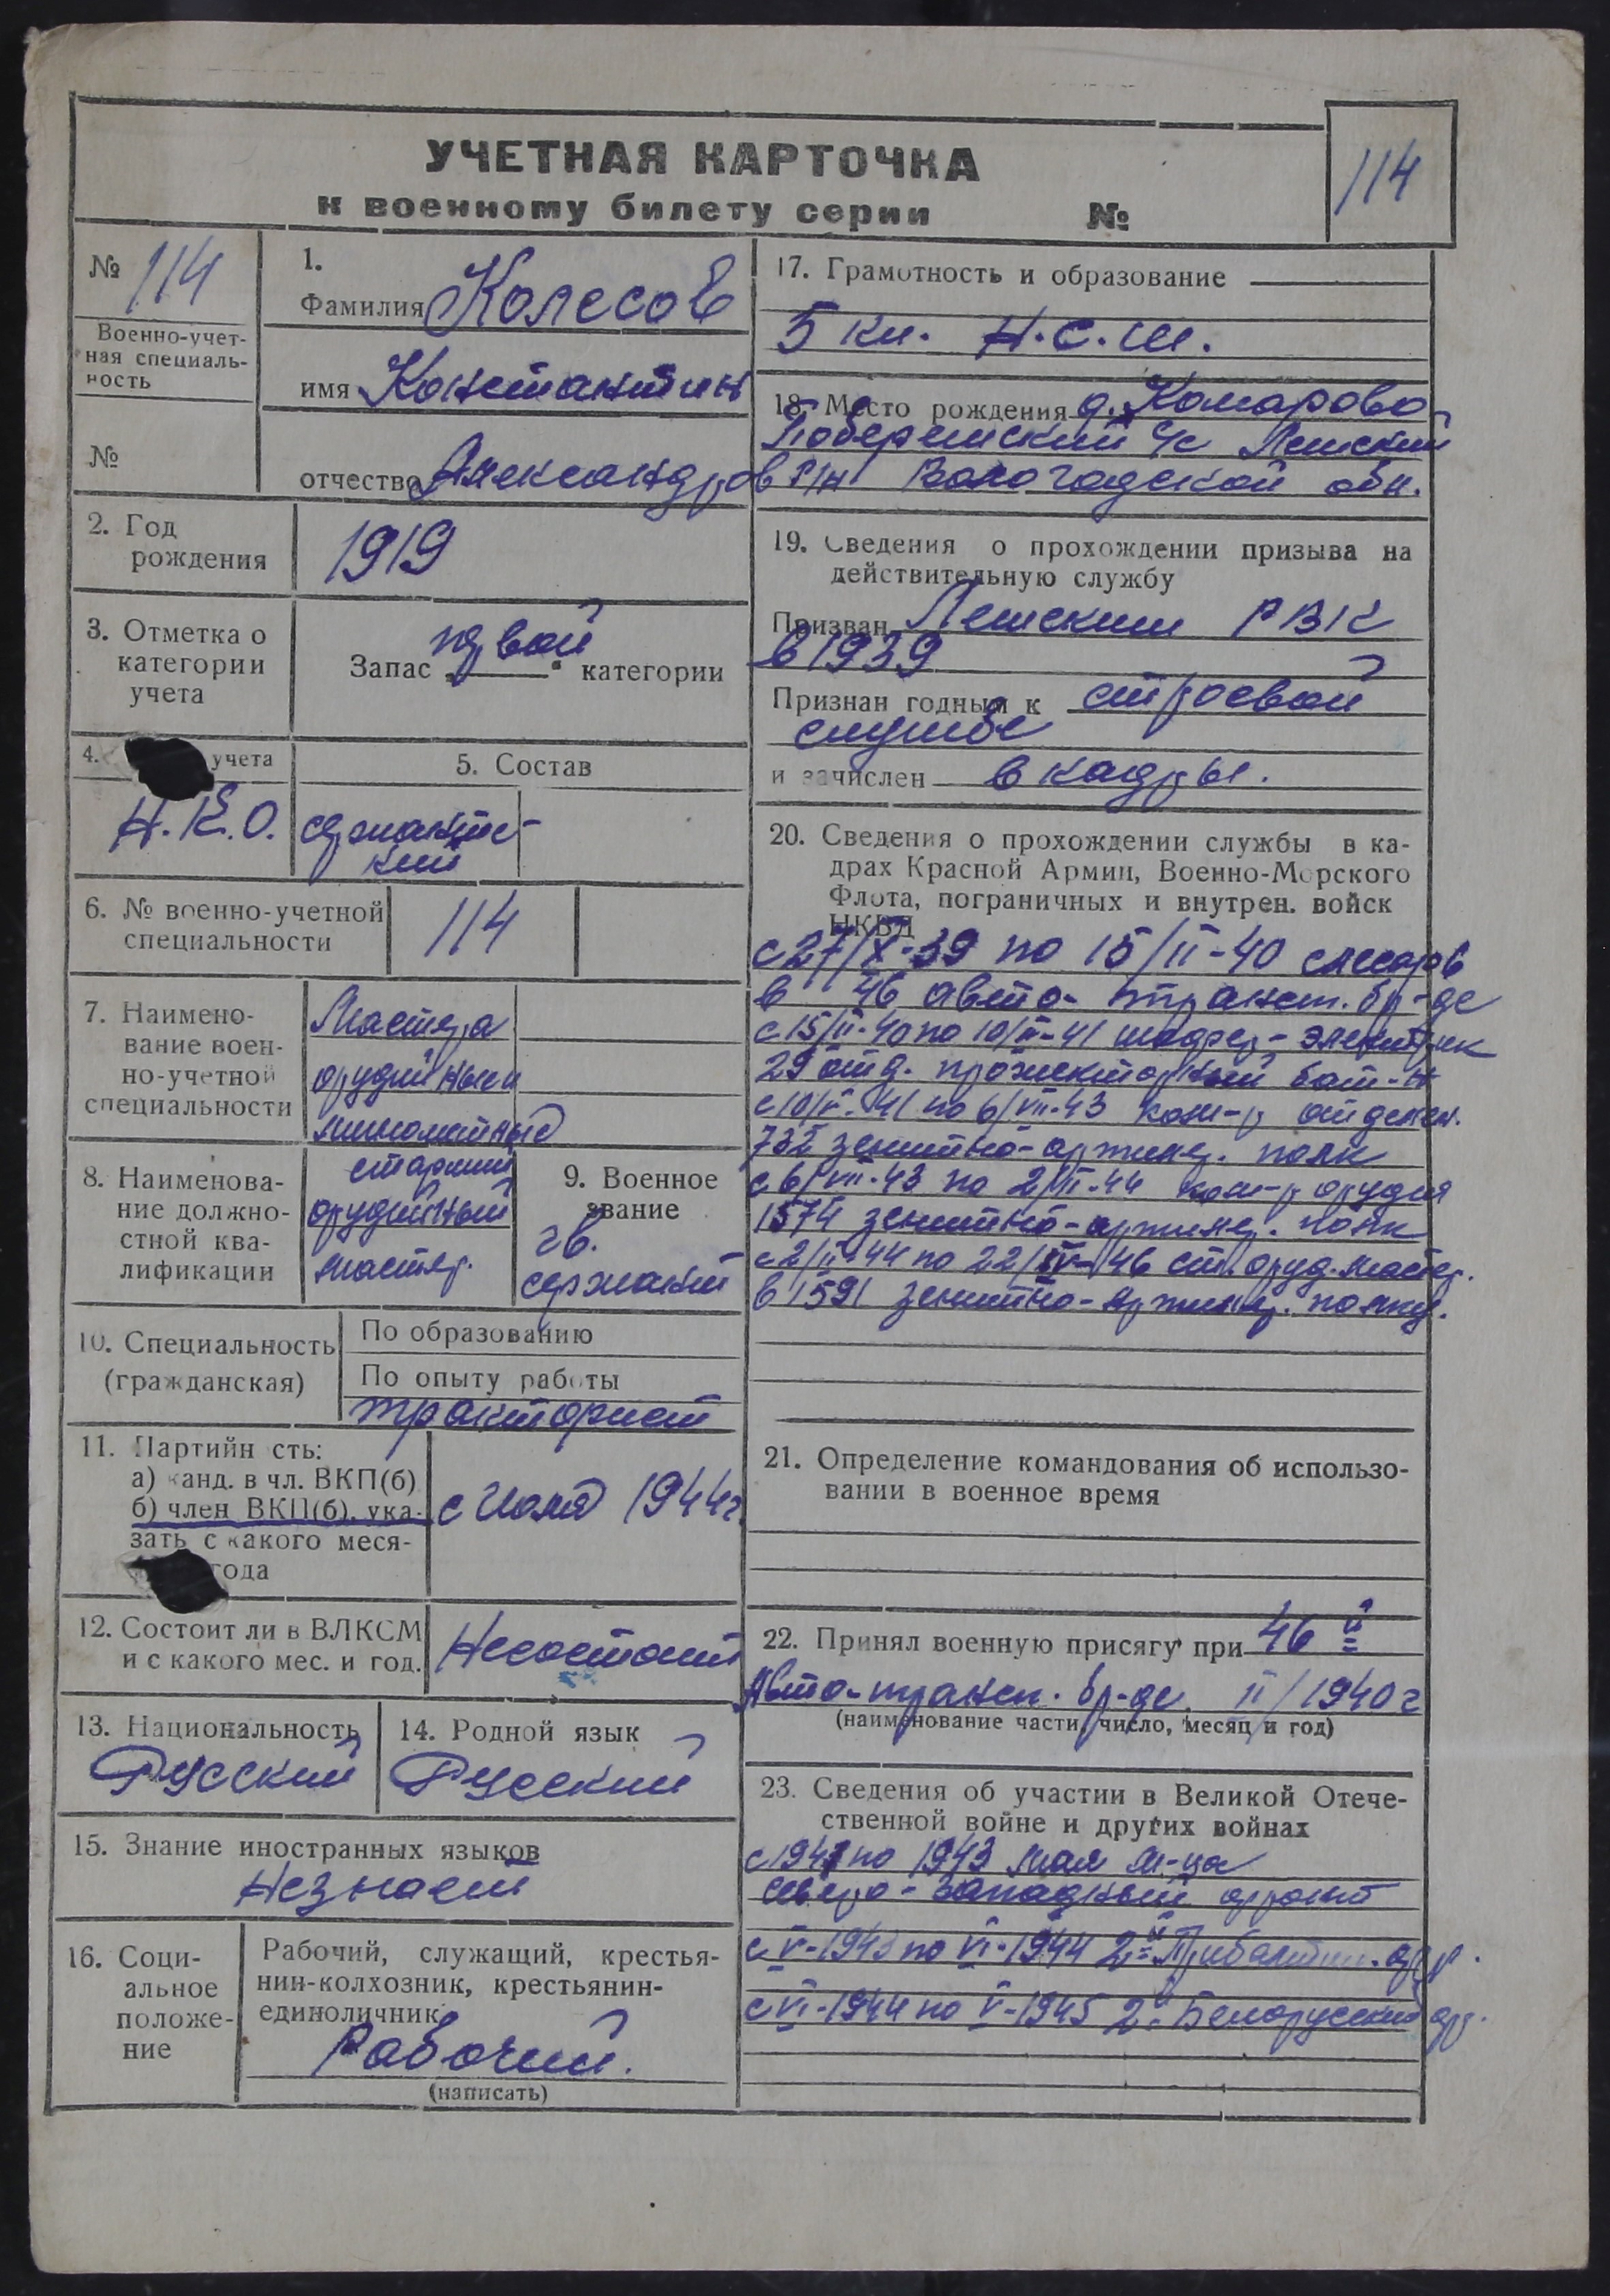 УЧЕТНАЯ КАРТОЧКА
к военному билету серии №
114
№ 114
Военно-учет-
ная специаль-
ность
№
1.
Фамилия Колесов
имя Константин
отчество Александров
2. Год
рождения
1919
3. Отметка о
категории
учета
Запас первой категории
4. учета
Н.К.О.
5. Состав
сержантс-
кий
6. № военно-учетной
специальности
114
7. Наимено-
вание воен-
но-учетной
специальности
Мастера
орудийные и
миномётные
8. Наименова-
ние должно-
стной ква-
лификации
старший
орудийный
мастер.
9. Военное
звание
гв.
сержант
10. Специальность
(гражданская)
По образованию
По опыту работы
тракторист
11. Партийн сть:
а) канд. в чл. ВКП(б)
б) член ВКП(б), ука-
зать с какого меся-
года
с Июля 1944г.
12. Состоит ли в ВЛКСМ
и с какого мес. и год.
Несостоит
13. Национальность
Русский
14. Родной язык
Русский
15. Знание иностранных языков
Незнает
16. Соци-
альное
положе-
ние
Рабочий, служащий, крестья-
нин-колхозник, крестьянин-
единоличник
Рабочий.
(написать)
17. Грамотность и образование
5 кл. Н.С.Ш.
18. Место рождения д. Комарово
с/с Лежский
р/н Вологодской обл.
19. Сведения о прохождении призыва на
действительную службу
Призван Лежским РВК
в 1939
Признан годным к строевой
службе
и зачислен в кадры.
20. Сведения о прохождении службы в ка-
драх Красной Армии, Военно-Морского
Флота, пограничных и внутрен. войск
НКВД
с 27/X-39 по 15/II-40 слесарь
в 46 авто-трансп. бр-де
с 15/II-40 по 10/II-41 шофер-электрик
29 отд. прожекторный бат-н
с 10/II-41 по 6/VII-43 ком-р отделен.
732 зенитно-артилер. полк
с 6/VII-43 по 2/II-44 ком-р орудия
1574 зенитно-артилер. полк
с 2/II-44 по 22/IV-46 ст. оруд. мастер.
в 1591 зенитно-артилер. полку.
21. Определение командования об использо-
вании в военное время
22. Принял военную присягу при 46й
Авто-трансп. бр-де. II/1940г
(наименование части, число, месяц и год)
23. Сведения об участии в Великой Отече-
ственной войне и других войнах
с 1941 по 1943 мая м-ца
северо-Западный фронт
с V-1943 по VI-1944 2й Прибалтий. фр.
с VI-1944 по V-1945 2й Белорусский фр.